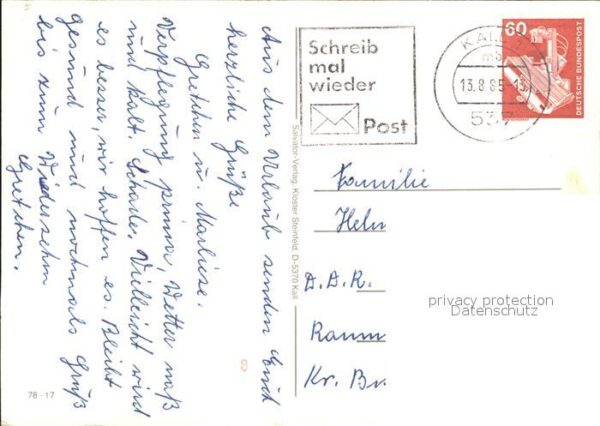 Aus dem Urlaub senden Euch
herzliche Grüße
Gretchen u. Marliese.
Verpflegung prima, Wetter naß
und kalt. Schade, Vielleicht wird
es besser, wir hoffen es. Bleibt
gesund und nochmals Grüß
bis zum Wiedersehn
Gretchen.
78-17
Salvator-Verlag, Kloster Steinfeld, D-5370 Kall
Schreib
mal
wieder
Post
KALL
13.8.85-15
537
60
DEUTSCHE BUNDESPOST
Familie
Helm
Raum
Kr. Br.
privacy protection
Datenschutz